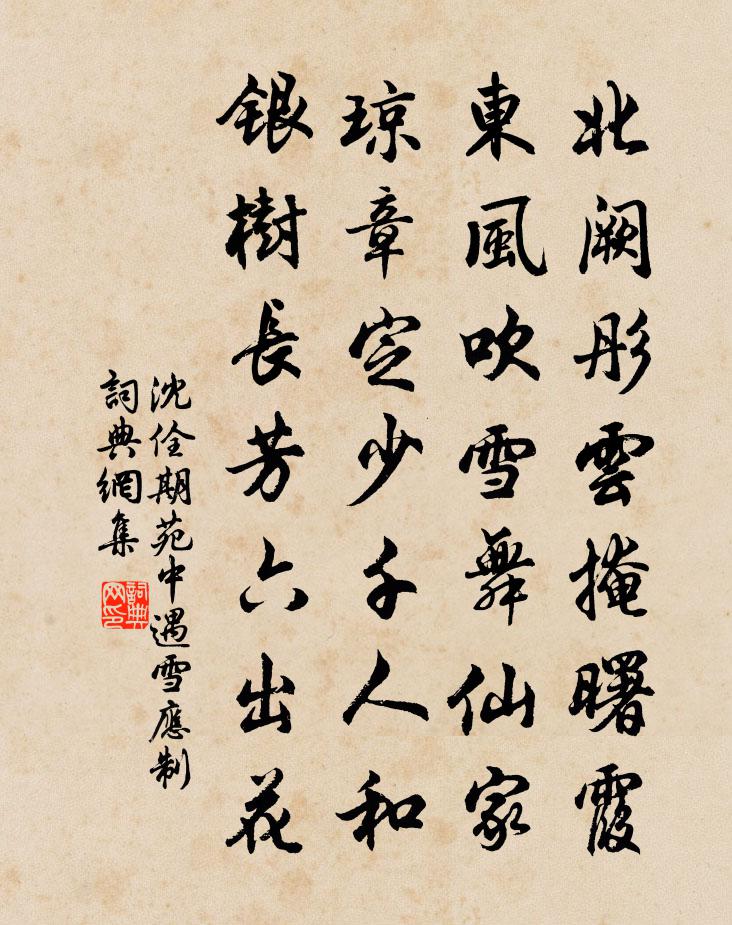 北闕彤雲掩曙霞
東風吹雪舞仙家
琼章定少千人和
銀樹長芳六出花
沈佺期苑中遇雪應制
詞典網集
詞典
网印